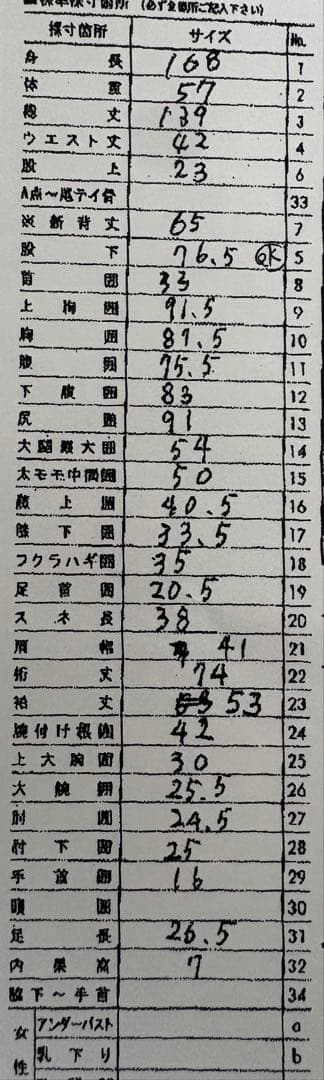 標準採寸箇所 (必ず全箇所ご記入下さい)
採寸箇所 サイズ No.
身長 168 1
体重 57 2
総丈 139 3
ウエスト丈 42 4
股上 23 6
A点〜尾テイ骨 33
※新背丈 65 7
股下 76.5 OK 5
首囲 33 8
上胸囲 91.5 9
胸囲 87.5 10
腹囲 75.5 11
下腹囲 83 12
尻囲 91 13
大腿最大囲 54 14
太モモ中間囲 50 15
膝上囲 40.5 16
膝下囲 33.5 17
フクラハギ囲 35 18
足首囲 20.5 19
スネ長 38 20
肩幅 41 21
裄丈 74 22
袖丈 53 23
腕付け根囲 42 24
上大腕囲 30 25
大腕囲 25.5 26
肘囲 24.5 27
肘下囲 25 28
手首囲 16 29
頭囲 30
足長 26.5 31
内果高 7 32
脇下〜手首 34
女性 アンダーバスト a
乳下り b